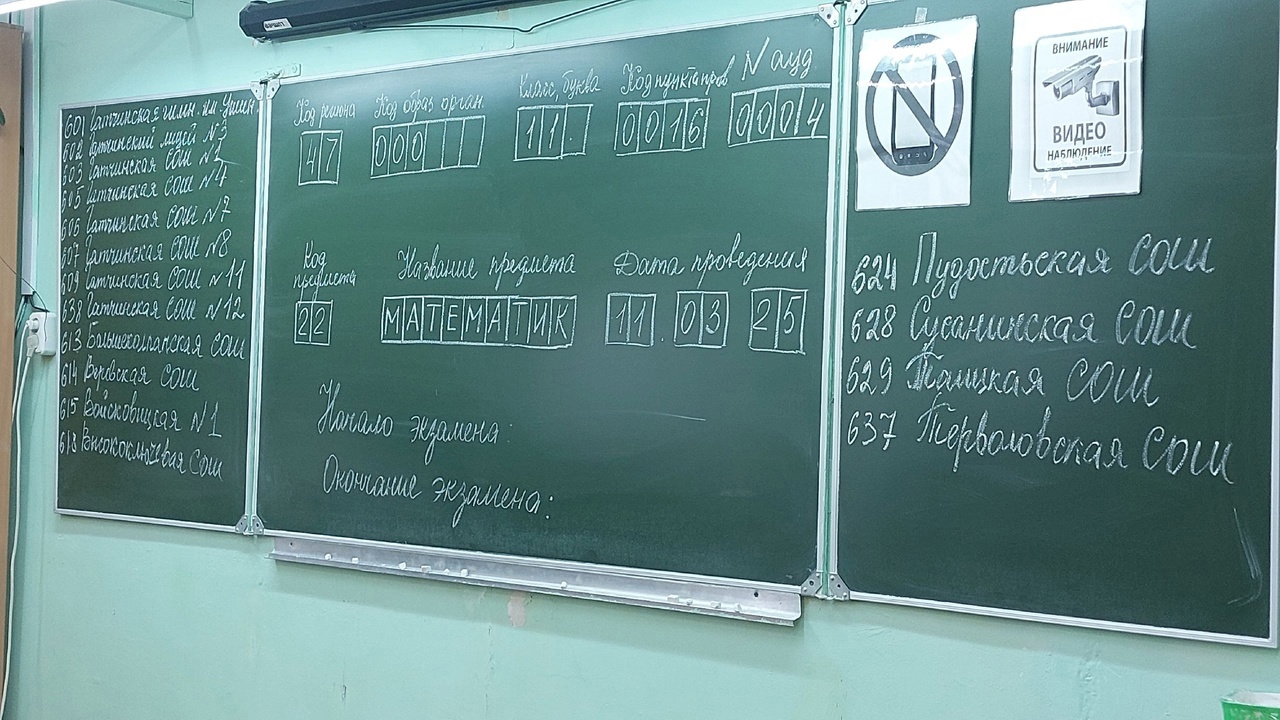 601 Гатчинская гимн. им. Ушин.
602 Гатчинский лицей №3
603 Гатчинская СОШ №2
605 Гатчинская СОШ №4
606 Гатчинская СОШ №7
607 Гатчинская СОШ №8
609 Гатчинская СОШ №11
638 Гатчинская СОШ №12
613 Большеколпанская СОШ
614 Веревская СОШ
615 Войсковицкая №1
618 Высокоключевая СОШ
Код региона Код образ. орган. Класс, буква Код пункта пров N ауд
47 000 11. 0016 0004
Код предмета Название предмета Дата проведения
22 МАТЕМАТИК 11.03 25
Начало экзамена:
Окончание экзамена:
ВНИМАНИЕ
ВИДЕО
НАБЛЮДЕНИЕ
624 Пудостьская СОШ
628 Сусанинская СОШ
629 Таицкая СОШ
637 Терволовская СОШ